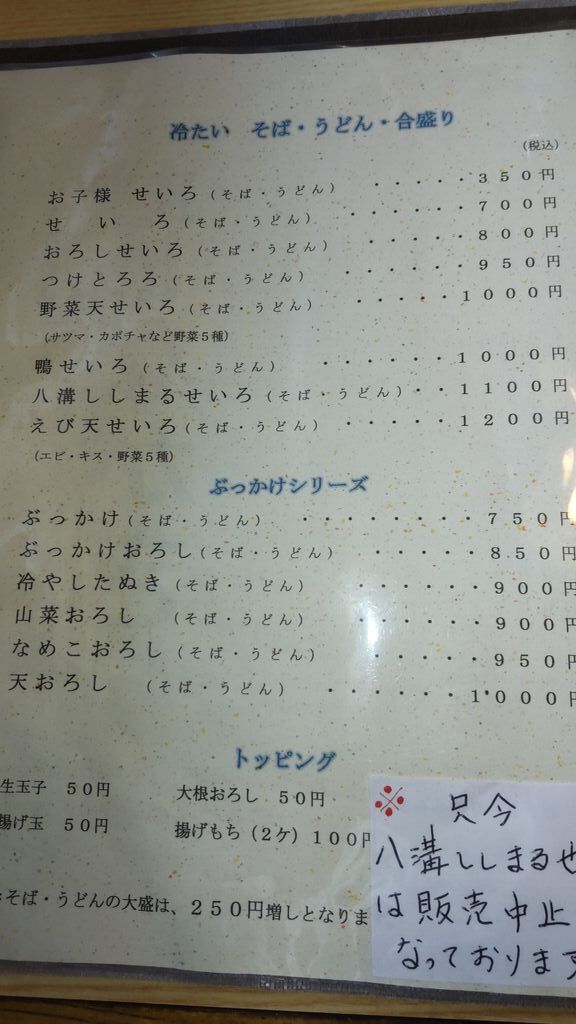 冷たい　そば・うどん・合盛り
（税込）
お子様　せいろ（そば・うどん）　・・・・・３５０円
せ　い　ろ（そば・うどん）　・・・・・・７００円
おろしせいろ（そば・うどん）　・・・・・８００円
つけとろろ（そば・うどん）　・・・・・・９５０円
野菜天せいろ（そば・うどん）　・・・・・１０００円
（サツマ・カボチャなど野菜５種）
鴨せいろ（そば・うどん）　・・・・・・・１０００円
八溝ししまるせいろ（そば・うどん）・・１１００円
えび天せいろ（そば・うどん）　・・・・・１２００円
（エビ・キス・野菜５種）
ぶっかけシリーズ
ぶっかけ（そば・うどん）　・・・・・・・・７５０円
ぶっかけおろし（そば・うどん）　・・・・・８５０円
冷やしたぬき（そば・うどん）　・・・・・・９００円
山菜おろし　（そば・うどん）　・・・・・・９００円
なめこおろし（そば・うどん）　・・・・・９５０円
天おろし　（そば・うどん）　・・・・・・・１０００円
トッピング
生玉子　５０円　　大根おろし　５０円
揚げ玉　５０円　　揚げもち（２ケ）１００円
そば・うどんの大盛は、２５０円増しとなりま
※　只今
八溝ししまるせ
は販売中止
なっております